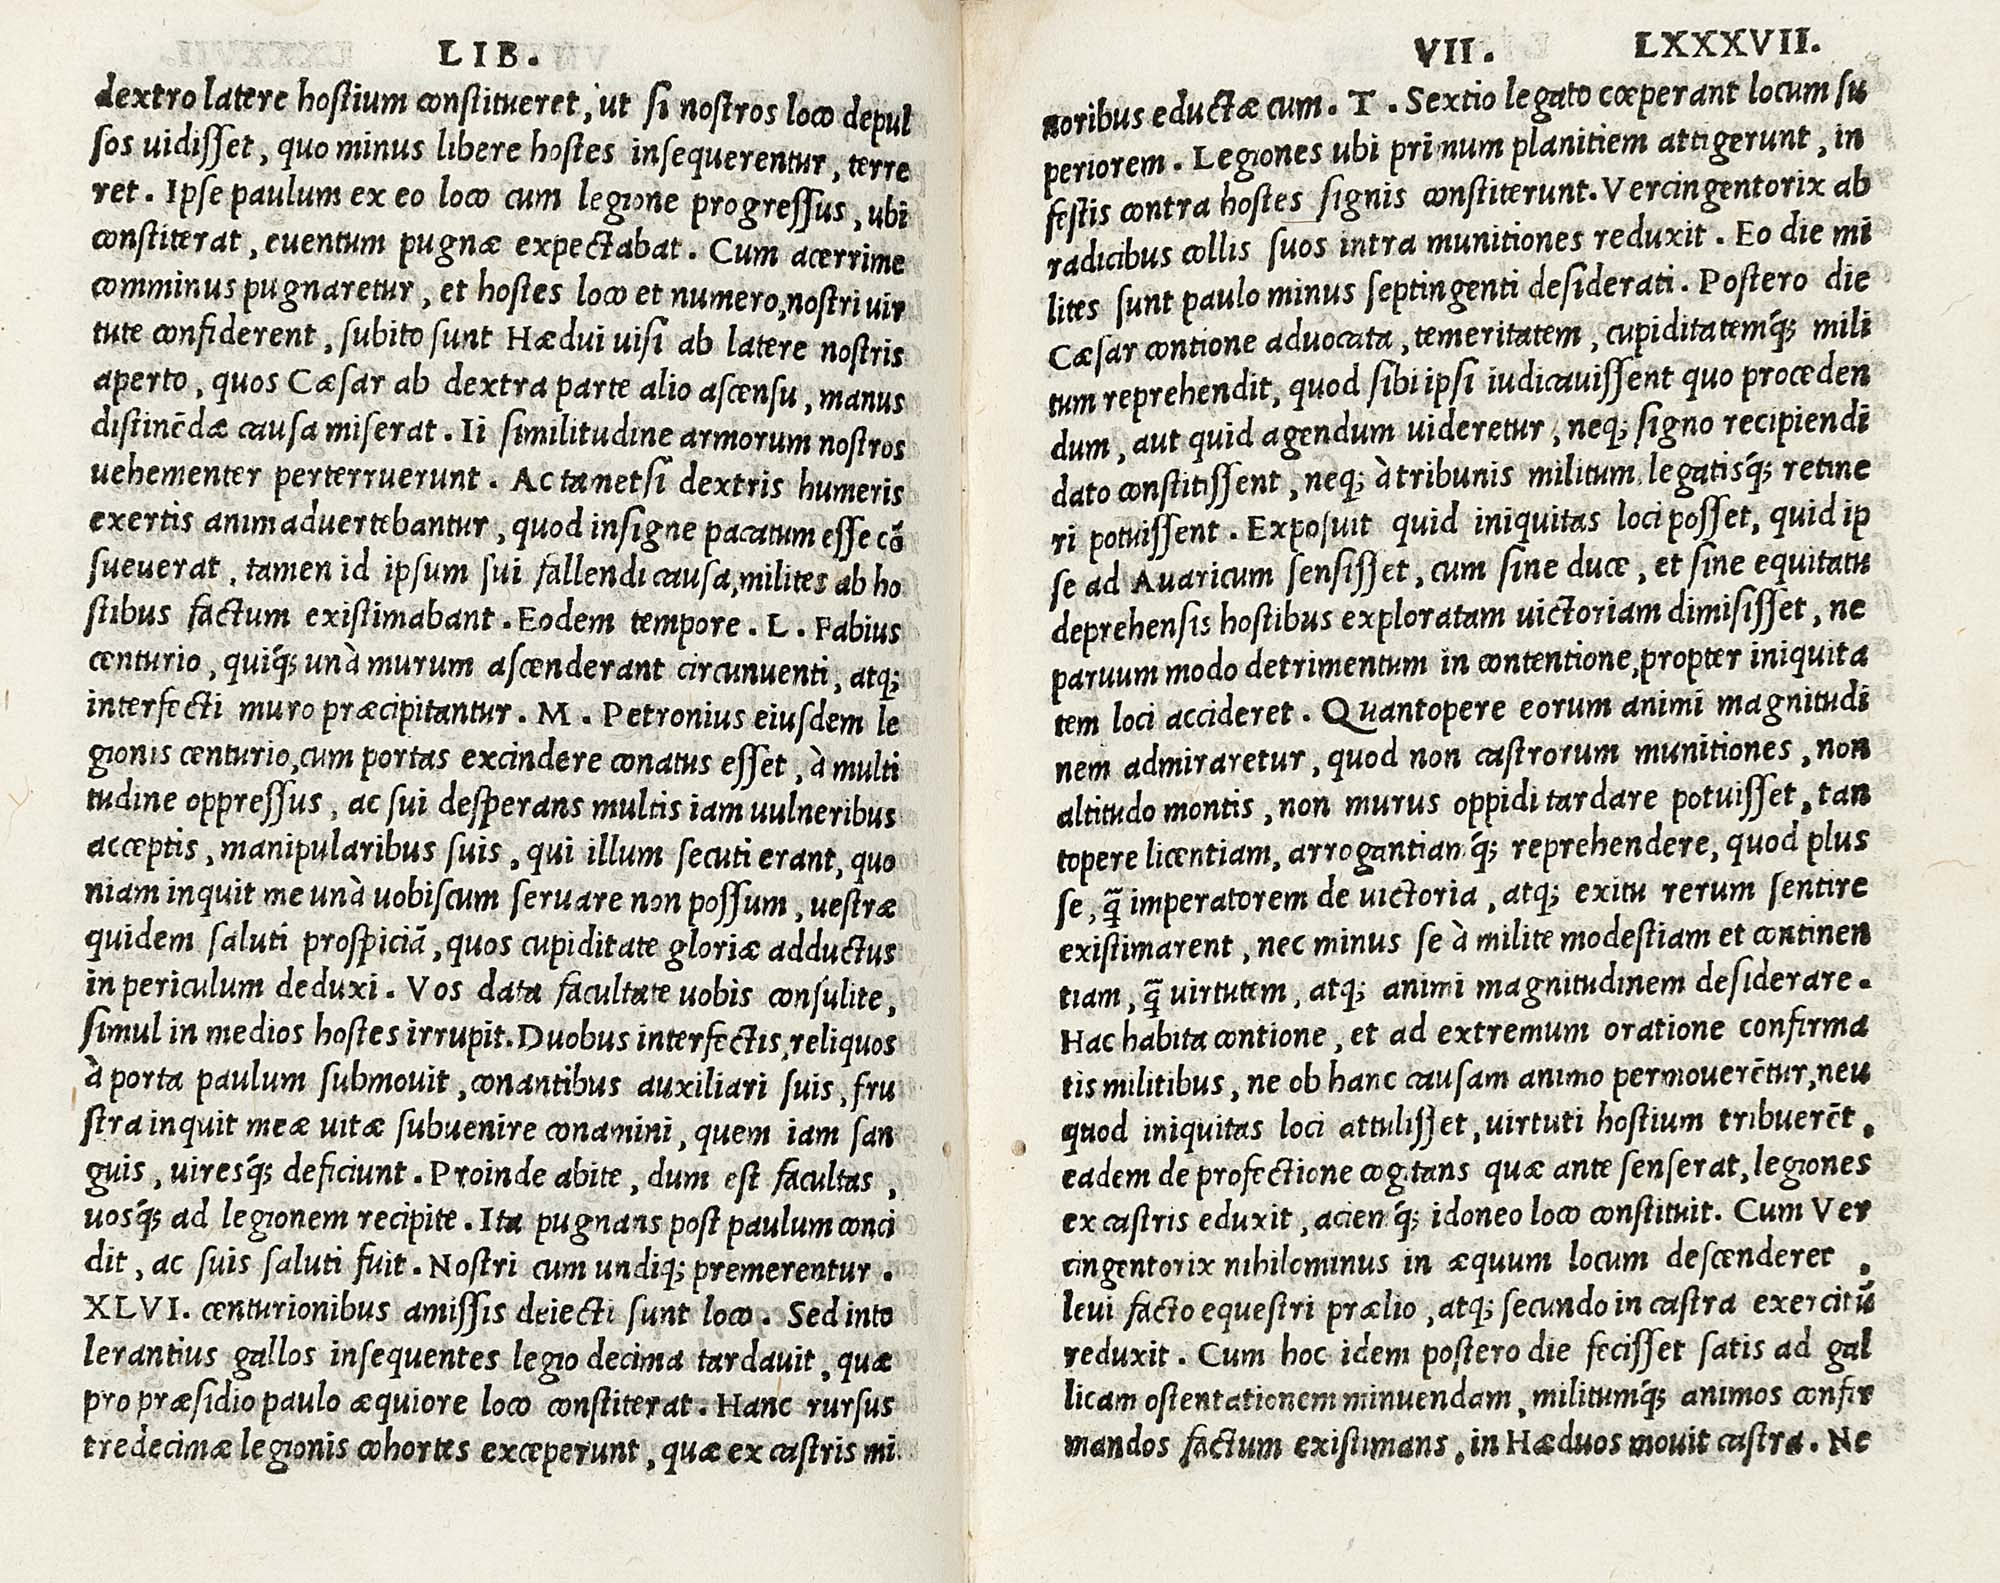 LIB.
dextro latere hostium constitueret, ut si nostros loco depul
sos uidisset, quo minus libere hostes insequerentur, terre
ret. Ipse paulum ex eo loco cum legione progressus, ubi
constiterat, euentum pugnæ expectabat. Cum acerrime
comminus pugnaretur, et hostes loco et numero, nostri uir
tute confiderent, subito sunt Hædui uisi ab latere nostris
aperto, quos Cæsar ab dextra parte alio ascensu, manus
distinēdæ causa miserat. Ii similitudine armorum nostros
uehementer perterruerunt. Ac tanetsi dextris humeris
exertis animaduertebantur, quod insigne pacatum esse cō
sueuerat, tamen id ipsum sui fallendi causa, milites ab ho
stibus factum existimabant. Eodem tempore. L. Fabius
centurio, quiq́; unà murum ascenderant circunuenti, atq;
interfecti muro præcipitantur. M. Petronius eiusdem le
gionis centurio, cum portas excindere conatus esset, à multi
tudine oppressus, ac sui desperans multis iam uulneribus
acceptis, manipularibus suis, qui illum secuti erant, quo
niam inquit me unà uobiscum seruare non possum, uestræ
quidem saluti prospiciā, quos cupiditate gloriæ adductus
in periculum deduxi. Vos data facultate uobis consulite,
simul in medios hostes irrupit. Duobus interfectis, reliquos
à porta paulum submouit, conantibus auxiliari suis, fru
stra inquit meæ uitæ subuenire conamini, quem iam san
guis, uiresq́; deficiunt. Proinde abite, dum est facultas,
uosq́; ad legionem recipite. Ita pugnans post paulum conci
dit, ac suis saluti fuit. Nostri cum undiq; premerentur.
XLVI. centurionibus amissis deiecti sunt loco. Sed into
lerantius gallos insequentes legio decima tardauit, quæ
pro præsidio paulo æquiore loco constiterat. Hanc rursus
tredecimæ legionis cohortes exceperunt, quæ ex castris mi
VII. LXXXVII.
noribus eductæ cum. T. Sextio legato cœperant locum su
periorem. Legiones ubi primum planitiem attigerunt, in
festis contra hostes signis constiterunt. Vercingentorix ab
radicibus collis suos intra munitiones reduxit. Eo die mi
lites sunt paulo minus septingenti desiderati. Postero die
Cæsar contione aduocata, temeritatem, cupiditatemq́; mili
tum reprehendit, quod sibi ipsi iudicauissent quo proceden
dum, aut quid agendum uideretur, neq; signo recipiendi
dato constitissent, neq; à tribunis militum legatisq́; retine
ri potuissent. Exposuit quid iniquitas loci posset, quid ip
se ad Auaricum sensisset, cum sine duce, et sine equitatu
deprehensis hostibus exploratam uictoriam dimisisset, ne
paruum modo detrimentum in contentione, propter iniquita
tem loci accideret. Quantopere eorum animi magnitudi
nem admiraretur, quod non castrorum munitiones, non
altitudo montis, non murus oppidi tardare potuisset, tan
topere licentiam, arrogantiamq́; reprehendere, quod plus
se, q̄ imperatorem de uictoria, atq; exitu rerum sentire
existimarent, nec minus se à milite modestiam et continen
tiam, q̄ uirtutem, atq; animi magnitudinem desiderare.
Hac habita contione, et ad extremum oratione confirma
tis militibus, ne ob hanc causam animo permouerētur, neu
quod iniquitas loci attulisset, uirtuti hostium tribuerēt,
eadem de profectione cogitans quæ ante senserat, legiones
ex castris eduxit, aciemq́; idoneo loco constituit. Cum Ver
cingentorix nihilominus in æquum locum descenderet,
leui facto equestri prælio, atq; secundo in castra exercitū
reduxit. Cum hoc idem postero die fecisset satis ad gal
licam ostentationem minuendam, militumq́; animos confir
mandos factum existimans, in Hæduos mouit castra. Ne